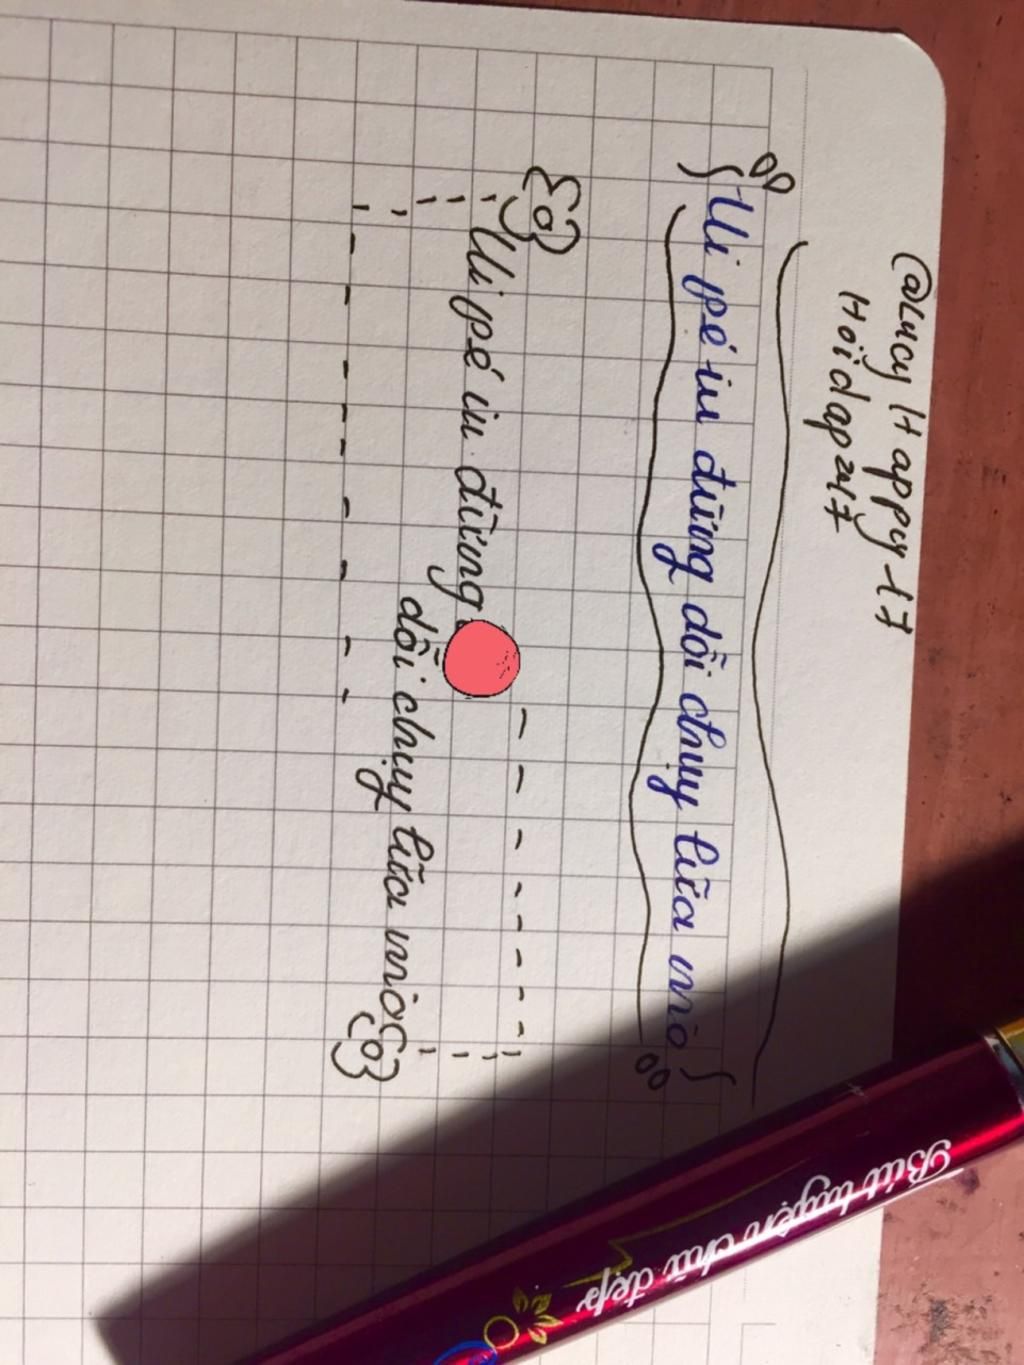 @Lucy Happy 17
Hoidap247
Ui pé iu đừng dỗi chụy lữa mò
Ui pé iu đừng
dỗi chụy lữa mò
Bút luyện chữ đẹp